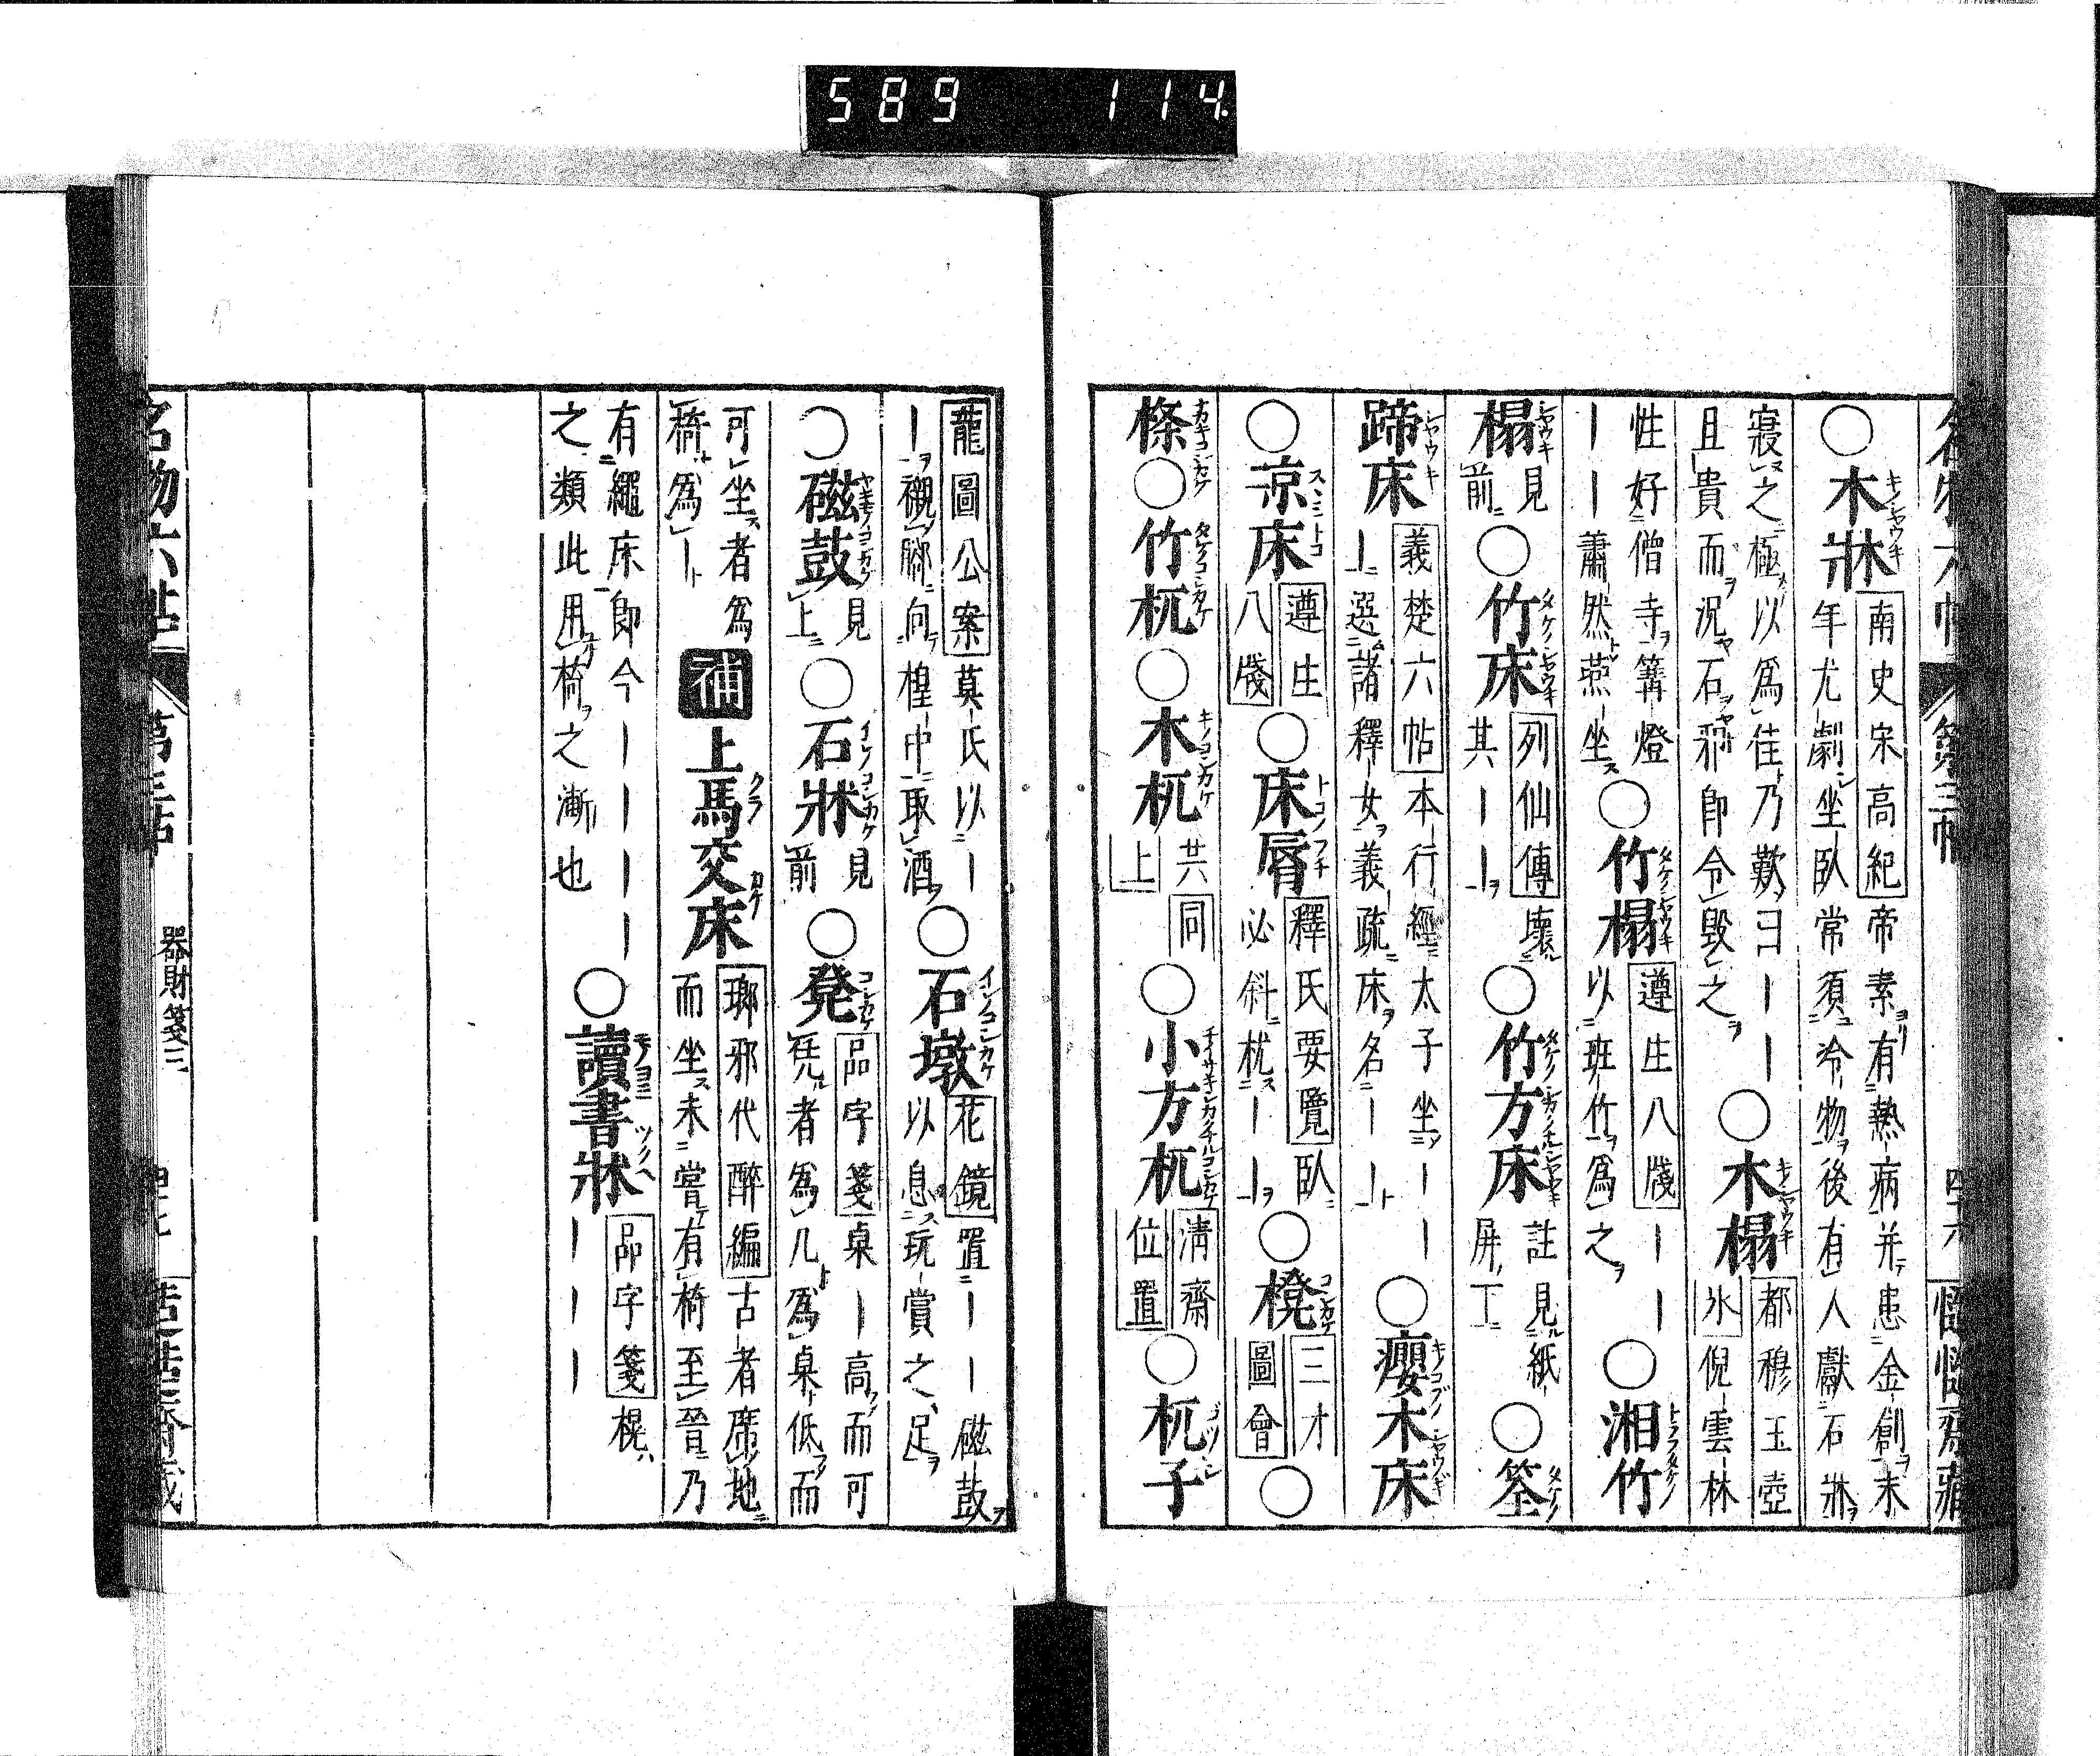 589 114
名物六帖 第三帖 四十六
○木牀 南史宋高紀 帝素有熱病并患金創末
年尤劇坐臥常須冷物後有人獻石牀
寢之極以爲佳乃歎曰｜｜
且貴而況石邪即令毀之 ○木榻 都穆玉壺
氷 倪雲林
性好僧寺篝燈
｜｜蕭然燕坐 ○竹榻 遵生八牋 ｜｜
以班竹爲之 ○湘竹
榻 見
前 ○竹床 列仙傳 壞
其｜｜ ○竹方床 註見紙
屏丁 ○筌
蹄床 義楚六帖 本行經太子坐｜｜
｜選諸釋女義疏床名｜｜ ○癭木床
○凉床 遵生
八牋 ○床脣 釋氏要覽 臥
必斜枕｜｜ ○櫈 三才
圖會 ○
條○竹杌○木杌 共同
上 ○小方杌 清齋
位置 ○杌子
龍圖公案 莫氏以｜
｜襯脚向樘中取酒 ○石墩 花鏡 置｜｜磁鼓
以息玩賞之足
○磁鼓 見
上 ○石牀 見
前 ○凳 品字箋 桌｜高而可
凭者爲几爲桌低而
可坐者爲
椅爲｜ 補 上馬交床 瑯邪代醉編 古者席地
而坐未嘗有椅至晉乃
有繩床即今｜｜｜｜
之類此用椅之漸也 ○讀書牀 品字箋 榥
｜｜｜
器財箋三